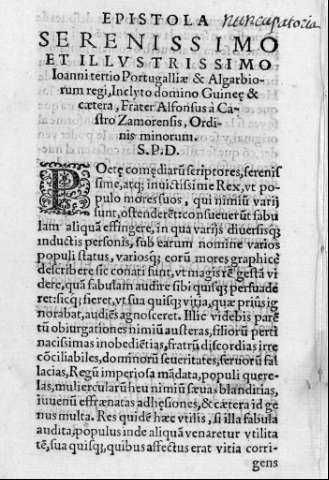 EPISTOLA nuncupatoria
SERENISSIMO
ET ILLVSTRISSIMO
Ioanni tertio Portugalliæ & Algarbio-
rum regi, Inclyto domino Guineę &
cætera, Frater Alfonsus à Ca-
stro Zamorensis, Ordi-
nis minorum.
S.P.D.
POetę comędiarũ scriptores, serenis
sime, atq; inuictissime Rex, vt po-
pulo mores suos, qui nimiũ varij
sunt, ostenderẽt: consueuerũt fabu
lam aliquã effingere, in qua varijs diuersisq;
inductis personis, sub earum nomine varios
populi status, variosq; eorũ mores graphicè
describere sic conati sunt, vt magis rẽ gestã vi
dere, quã fabulam audire sibi quisq; persuade
ret: sicq; fieret, vt sua quisq; vitia, quæ prius ig
norabat, audiẽs agnosceret. Illic videbis parẽ
tũ obiurgationes nimiũ austeras, filiorũ perti
nacissimas inobediẽtias, fratrũ discordias irre
cõciliabiles, dominorũ seueritates, seruorũ fal
lacias, Regũ imperiosa mãdata, populi quere-
las, muliercularũ heu nimiũ sæuas blanditias,
iuuenũ effrænatas adhęsiones, & cætera id ge
nus multa. Res quidẽ hæc vtilis, si illa fabula
audita, populus inde aliquã venaretur vtilita
tẽ, sua quisq; quibus affectus erat vitia corri-
gens